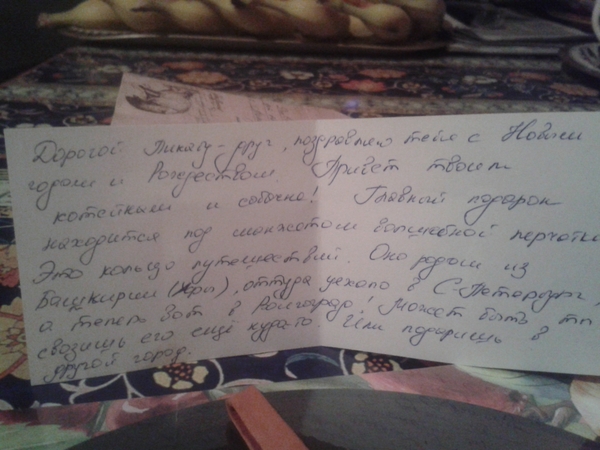 Дорогой Пикабу-друг, поздравляю тебя с Новым
годом и Рождеством. Привет твоим
котейкам и собачке! Главный подарок
находится под манжетом волшебной перчатки.
Это кольцо путешествий. Оно родом из
Башкирии (Уфы), оттуда уехало в С-Петербург,
а теперь вот в Волгоград! Может быть ты
свозишь его ещё куда-то. Или подаришь в
другой город.